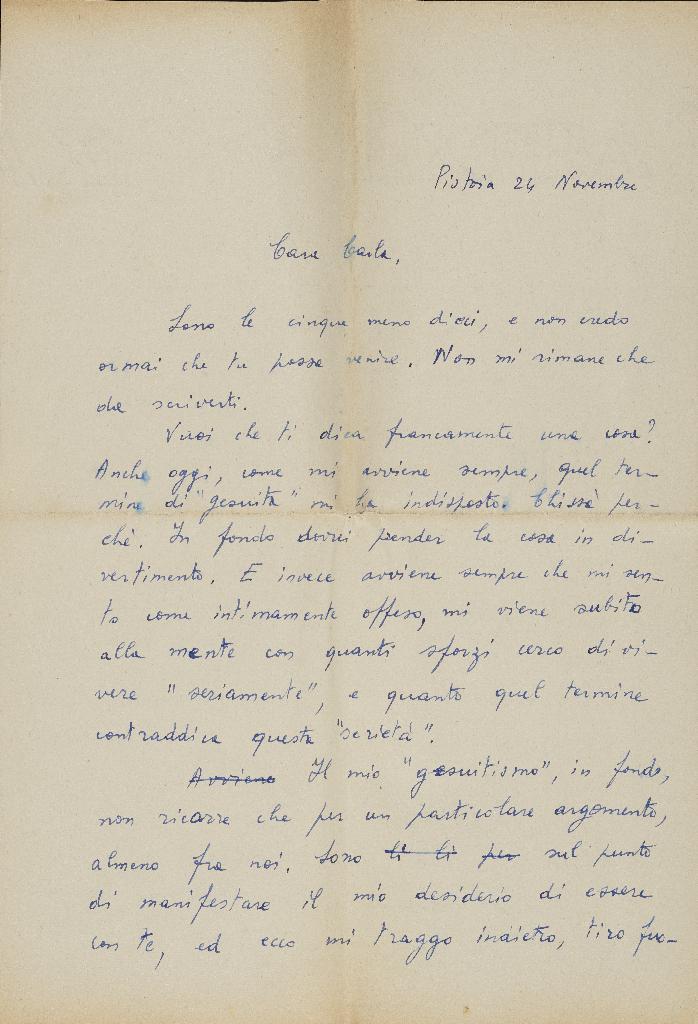 Pistoia 24 Novembre
Cara Carla,
Sono le cinque meno dieci, e non credo
ormai che tu possa venire. Non mi rimane che
da scriverti.
Vuoi che ti dica francamente una cosa?
Anche oggi, come mi avviene sempre, quel ter-
mine di "gesuita" mi ha indisposto. Chissà per-
chè. In fondo dovrei prender la cosa in di-
vertimento. E invece avviene sempre che mi sen-
to come intimamente offeso, mi viene subito
alla mente con quanti sforzi cerco di vi-
vere "seriamente", e quanto quel termine
contraddica questa "serietà".
Avviene Il mio "gesuitismo", in fondo,
non ricorre che per un particolare argomento,
almeno fra noi. Sono lì lì per sul punto
di manifestare il mio desiderio di essere
con te, ed ecco mi traggo indietro, tiro fuo-